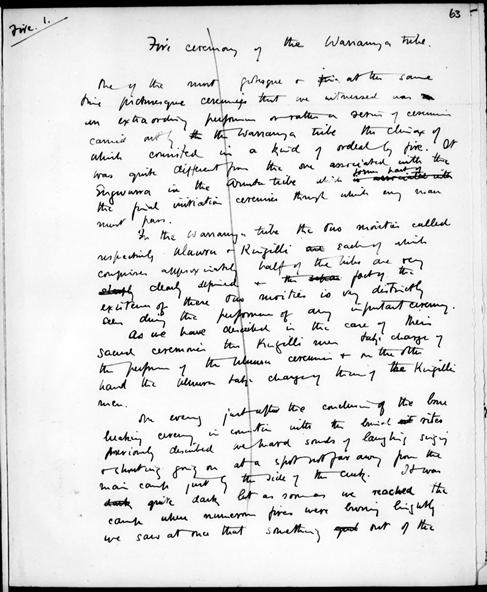 Fire. 1.
63
Fire ceremony of the Warramunga tribe.
One of the most grotesque & at the same
time picturesque ceremonies that we witnessed was
an extraordinary performance or rather a series of ceremonies
carried out by the Warramunga tribe the climax of
which consisted in a kind of ordeal by fire. It
was quite different from the one associated with the
Engwura in the Arunta tribe which forms part of
the final initiation ceremonies through which every man
must pass.
In the Warramunga tribe the two moieties called
respectively Uluuru & Kingilli each of which
comprises approximately half of the tribe are very
clearly defined & the fact of the
existence of these two moieties is very distinctly
seen during the performance of any important ceremony.
As we have described in the case of their
sacred ceremonies the Kingilli men take charge of
the performance of the Uluuru ceremonies & on the other
hand the Uluuru take charge of them of the Kingilli
men.
One evening just after the conclusion of the bone
breaking ceremony in connection with the burial rites
previously described we heard sounds of laughing singing
& shouting going on at a spot not far away from the
main camp just by the side of the creek. It was
quite dark but as soon as we reached the
camp where numerous fires were burning brightly
we saw at once that something out of the